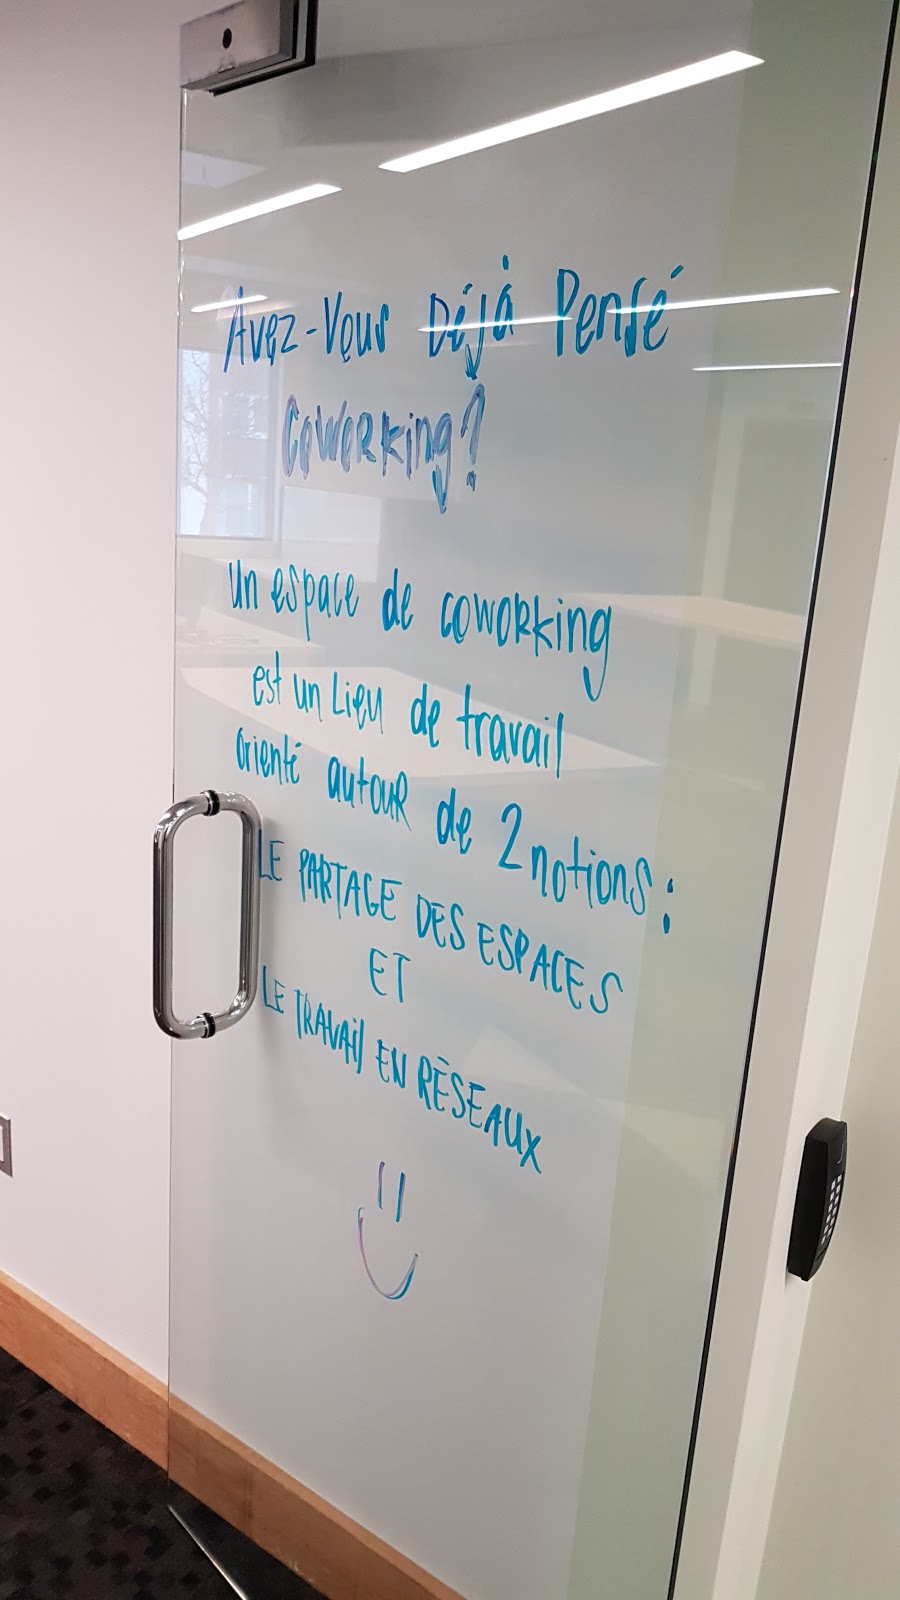 Avez-Vous Déjà Pensé
Coworking?
un espace de coworking
est un Lieu de travail
orienté autour de 2 notions :
LE PARTAGE DES ESPACES
ET
LE TRAVAil EN RÉSEAUX